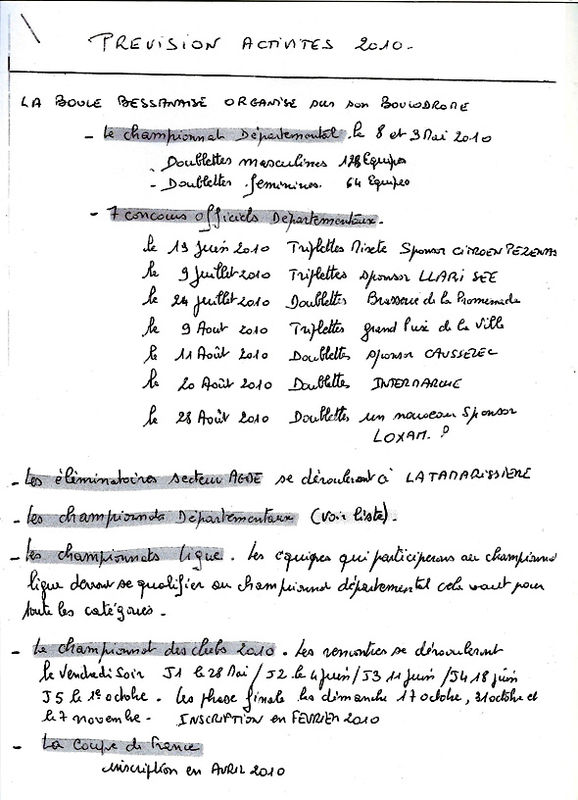 PREVISION ACTIVITES 2010.
LA BOULE BESSANAISE ORGANISE sur son BOULODROME
- Le championnat Départemental. le 8 et 9 Mai 2010
- Doublettes masculines 128 Equipes
- Doublettes feminines. 64 Equipes
- 7 concours officiels Departementaux.
le 19 Juin 2010 Triplettes Mixte Sponsor CITROEN PEZENAS
le 9 Juillet 2010 Triplettes sponsor LLARI SEE
le 24 juillet 2010 Doublettes Brasserie de la Promenade
le 9 Aout 2010 Triplettes grand Prix de la Ville
le 11 Août 2010 Doublettes sponsor CAUSSEREC
le 20 Août 2010 Doublettes INTERMARCHE
le 28 Août 2010 Doublettes un nouveau Sponsor
LOXAM. ?
- Les éliminatoires secteur AGDE se dérouleront à LA TAMARISSIERE
- Les championnats Départementaux (voir liste).
- Les championnats ligue. Les équipes qui participerons au championnat
ligue devront se qualifier au championnat départemental cela vaut pour
toute les catégories.
- Le championnat des clubs 2010. Les rencontres se dérouleront
le Vendredi Soir J1 le 28 Mai / J2 le 4 juin / J3 11 juin / J4 18 juin
J5 le 1er octobre. Les phase finale les dimanche 17 octobre, 31 octobre et
le 7 novembre. INSCRIPTION en FEVRIER 2010
- La Coupe de France
inscription en AVRIL 2010